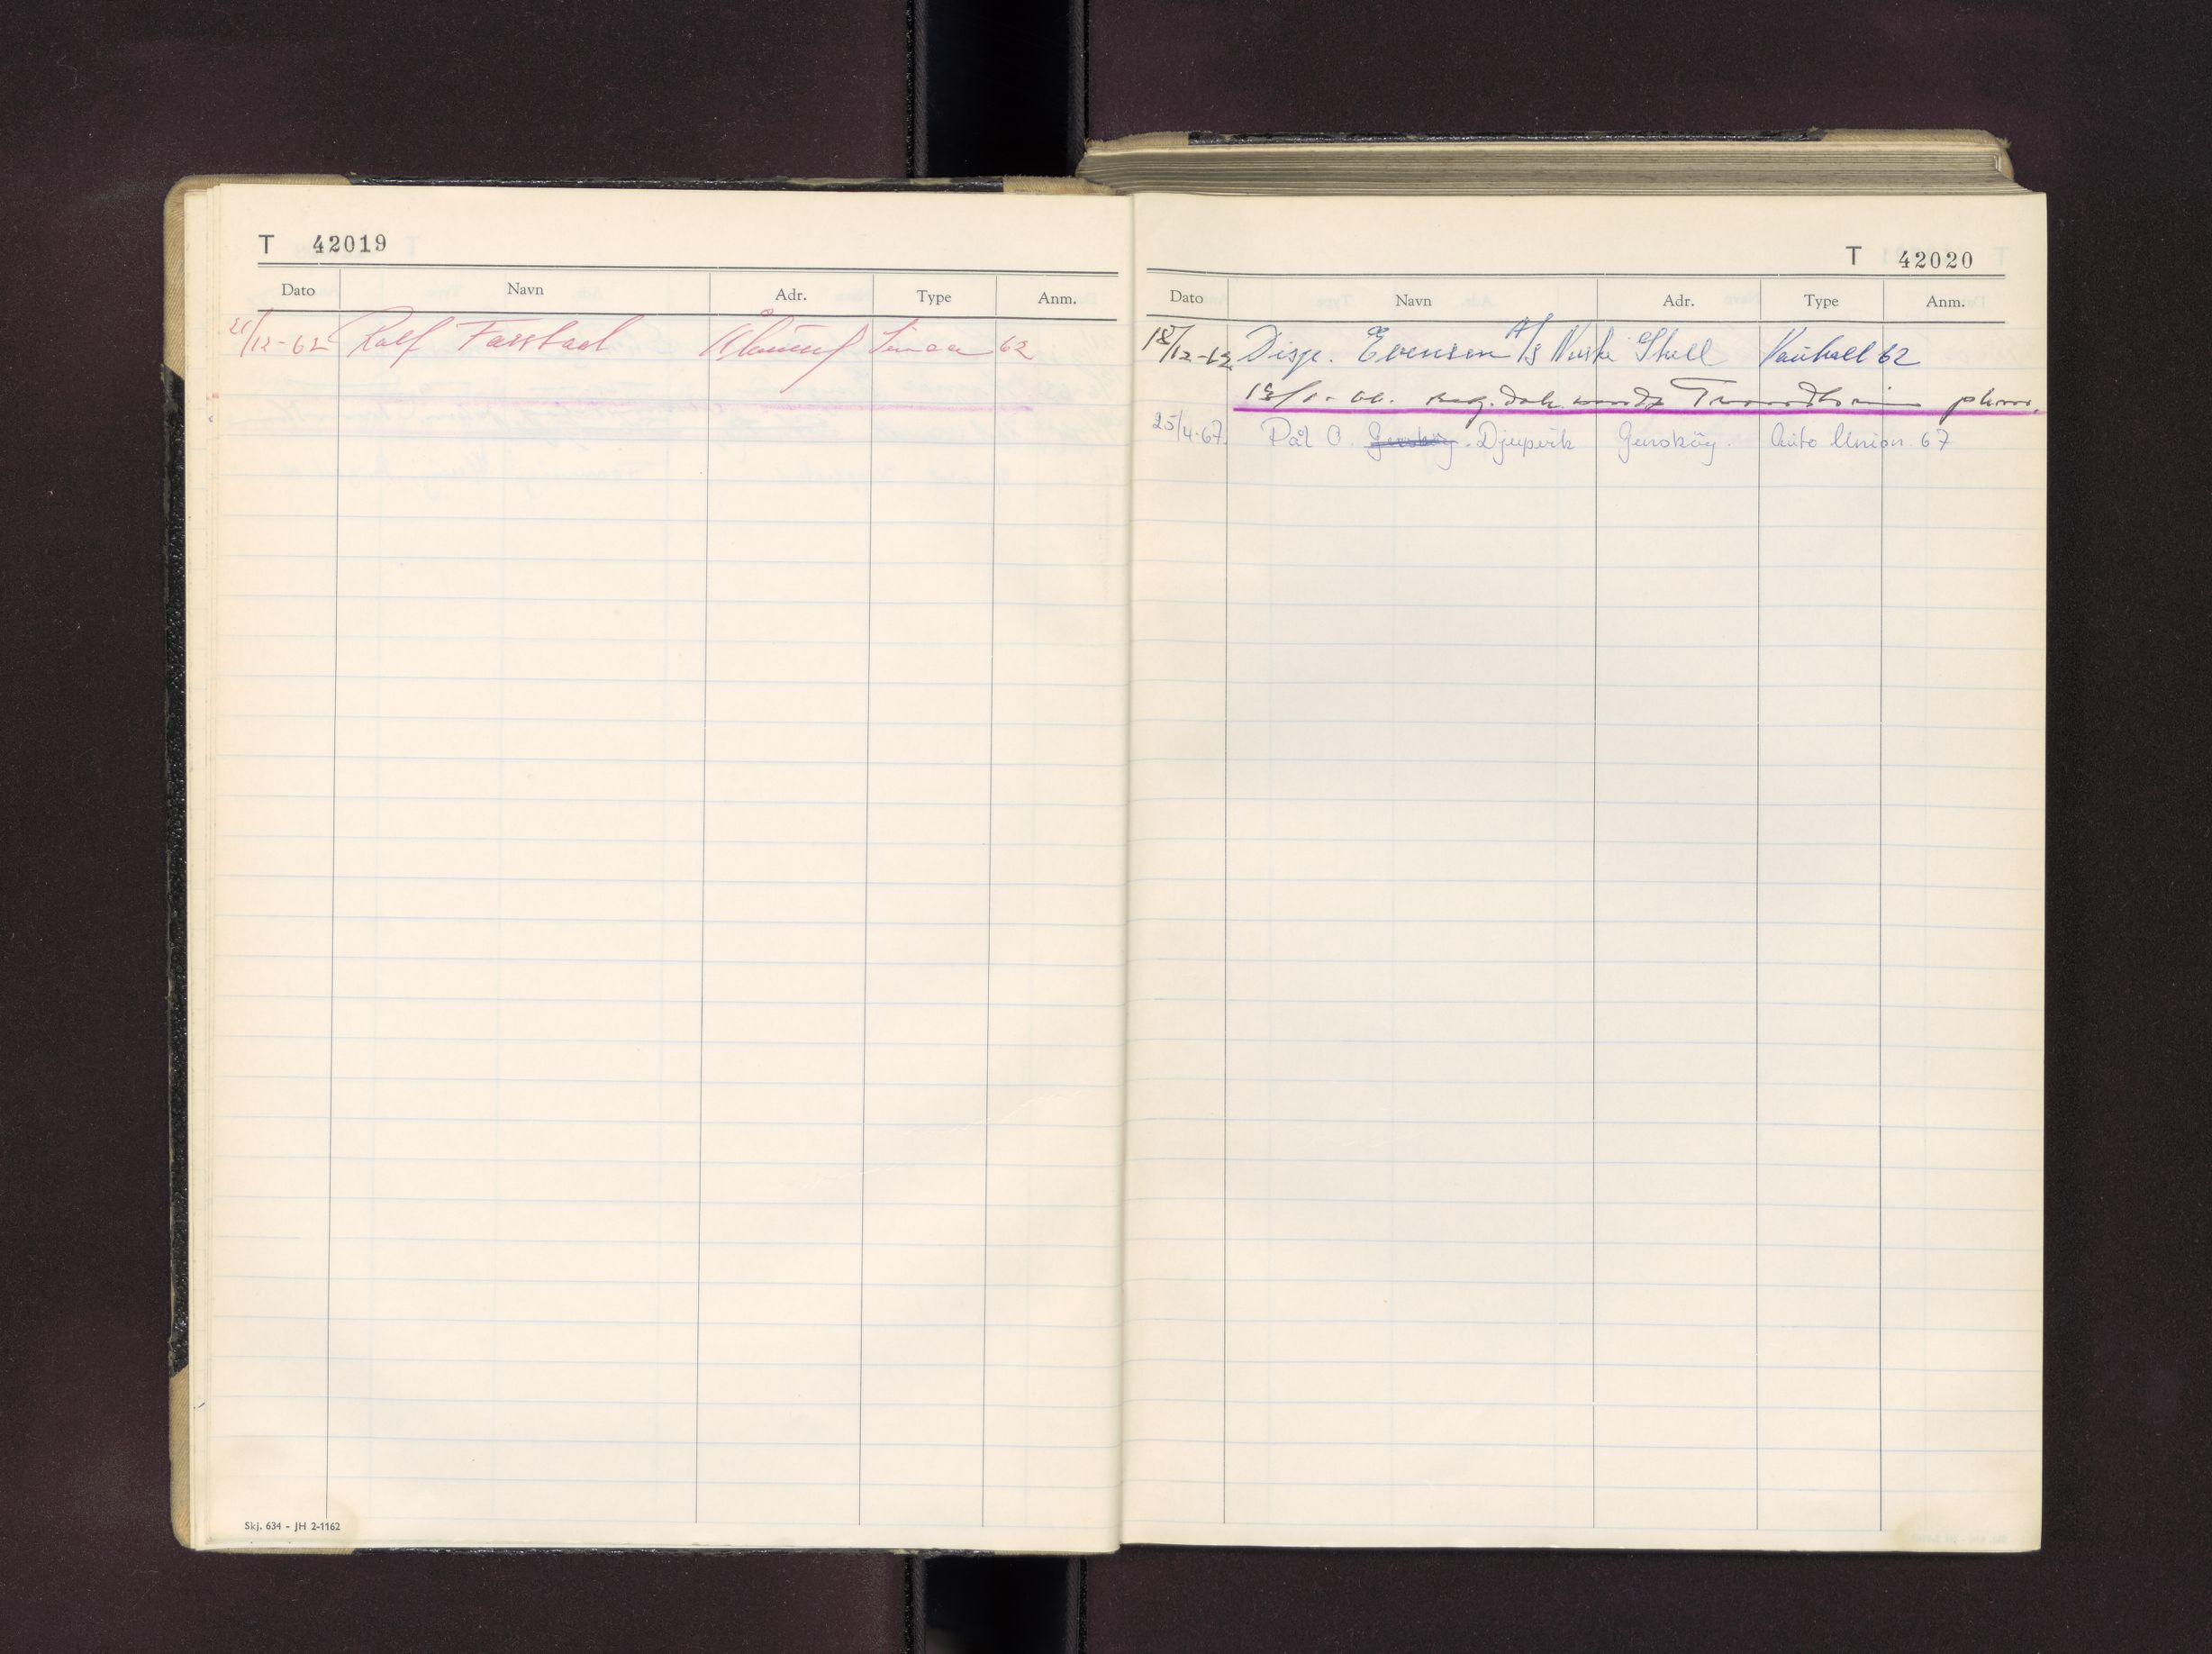 T 42019
Dato Navn Adr. Type Anm.
21/12-62 Rolf Farstad Ålesund Simca 62
Skj. 634 - JH 2-1162
T 42020
Dato Navn Adr. Type Anm.
18/12-62 Disp. Evensen A/S Norske Shell Vauxhall 62
18/1-66. Reg. dok. sendt Trondheim
25/4-67. Pål O. Gurskøy. Djupvik Gurskøy. Auto Union 67